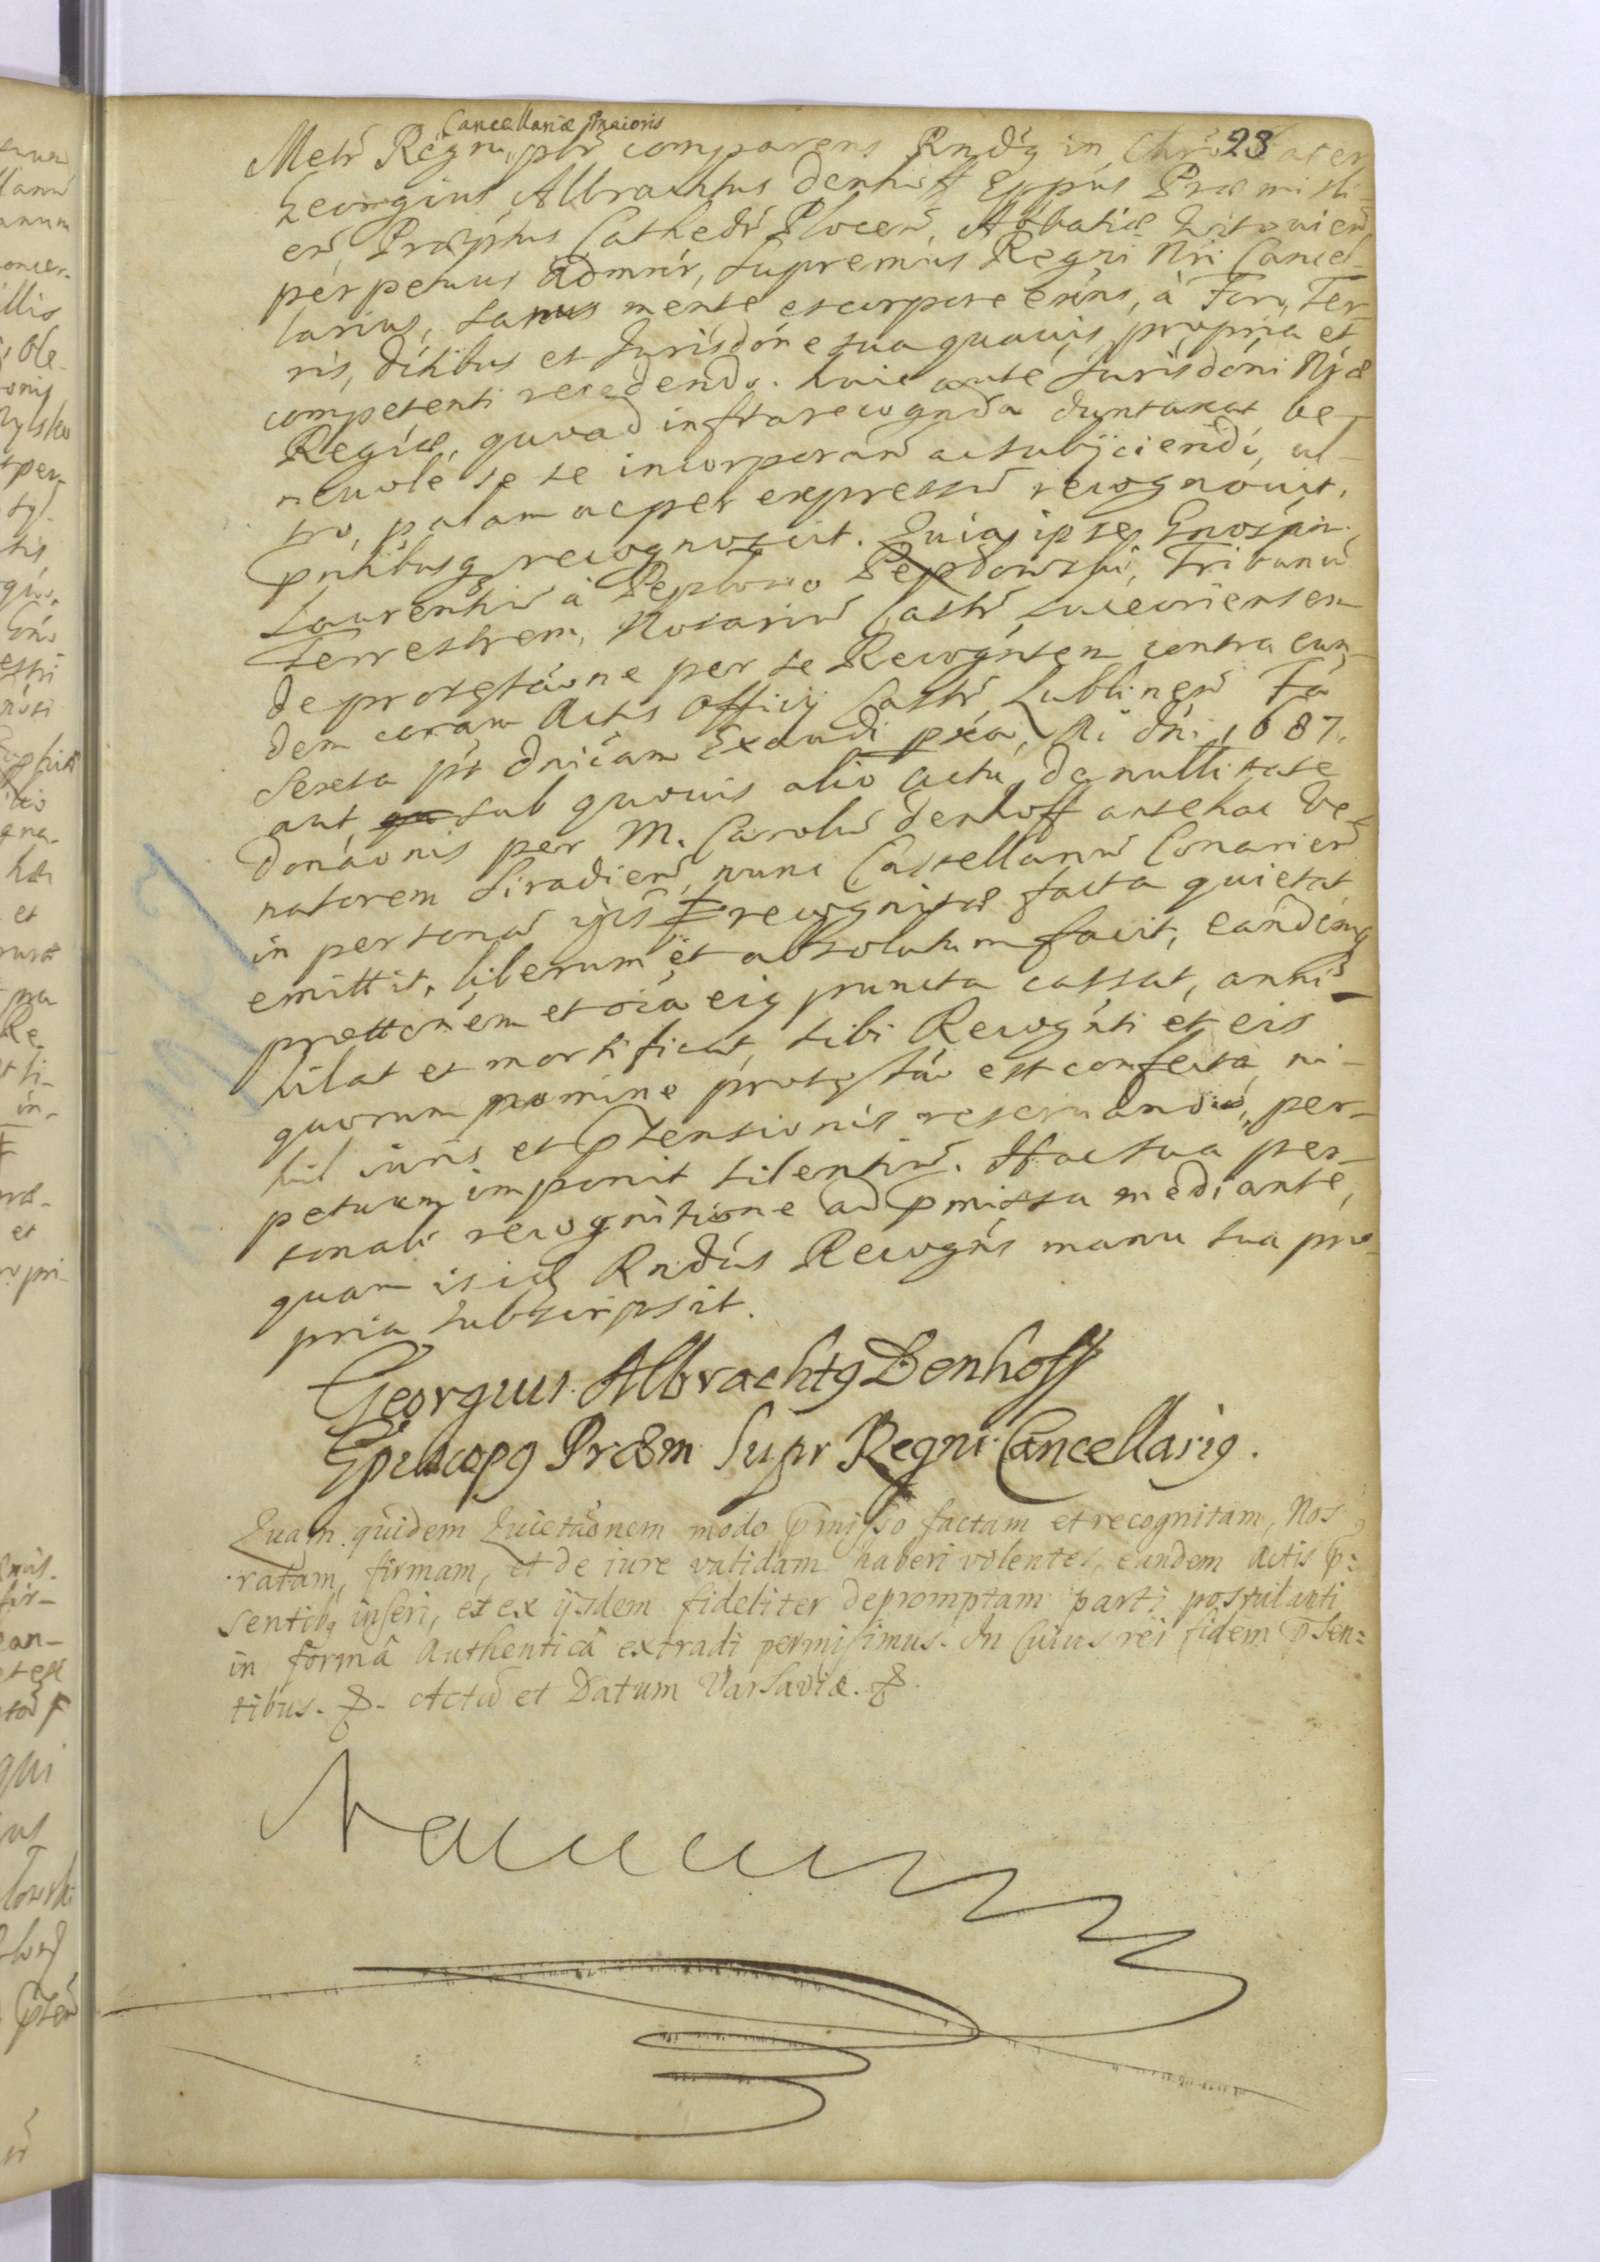 Cancellariæ Maioris
23
Metr Regni, plr comparens Rndq in Chro Pater
Georgius Albrachtus Denhoff Eppus Præmisli-
en, Præptus Cathedr Plocen, Abbatiæ
perpetuus Admnr, Supremus Regni Nri Cancel-
larius, sanus mente et corpore exns, à Foro, Ter-
ris, Ditibus et Jurisdone sua quavis, propria et
competenti recedendo. huic aute Jurisdoni Nræ
Regiæ, quoad infra recognda duntaxat be-
nevole se se incorporan ac subijciendo, ul-
tro, palam ac per expressu recognovit,
pntibusq recognoscit. Quia ipse Gnosum
Laurentiu à Peplowo Pepłowski, Tribunu
Terrestrem, Notariu Castr Luceoriensem
de protestaone per se Recognsen contra eun-
dem coram Actis Officij Castr Lublinen Fa
Sexta pt Dnicam Exaudi pxa, Ai Dni 1687.
aut sub quovis alio actu, de nullitate
donaonis per M. Carolu Denhoff antehac Ve-
natorem Siradien, nunc Castellanu Conarien
in persona recognitæ facta quietat
emittit, liberum et absolutum facit, eandemq
prottonem et oia eiq puncta cassat, anni-
hilat et mortificat, sibi Recognti et eis
quorum nomine protestao est confecta ni-
hil iuris et ptensionis reservando, per-
petuum imponit silentiu. Hac sua per-
sonali recognitione ad pmissa mediante,
quam is idq Rndus Recogns manu sua pro-
pria subscripsit.
Georgius Albrachtq Denhoff
Episcopq Præm Supr Regni Cancellariq.
Quam quidem Quietaonem modo pmisso factam et recognitam, Nos
ratam, firmam, et de iure validam haberi volentes, eandem Actis p:
sentibq inseri, et ex ijsdem fideliter depromptam parti postulanti
in formâ Authenticâ extradi permisimus. In Cuius rei fidem psen:
tibus. &. Actu et Datum Varsaviæ. &.